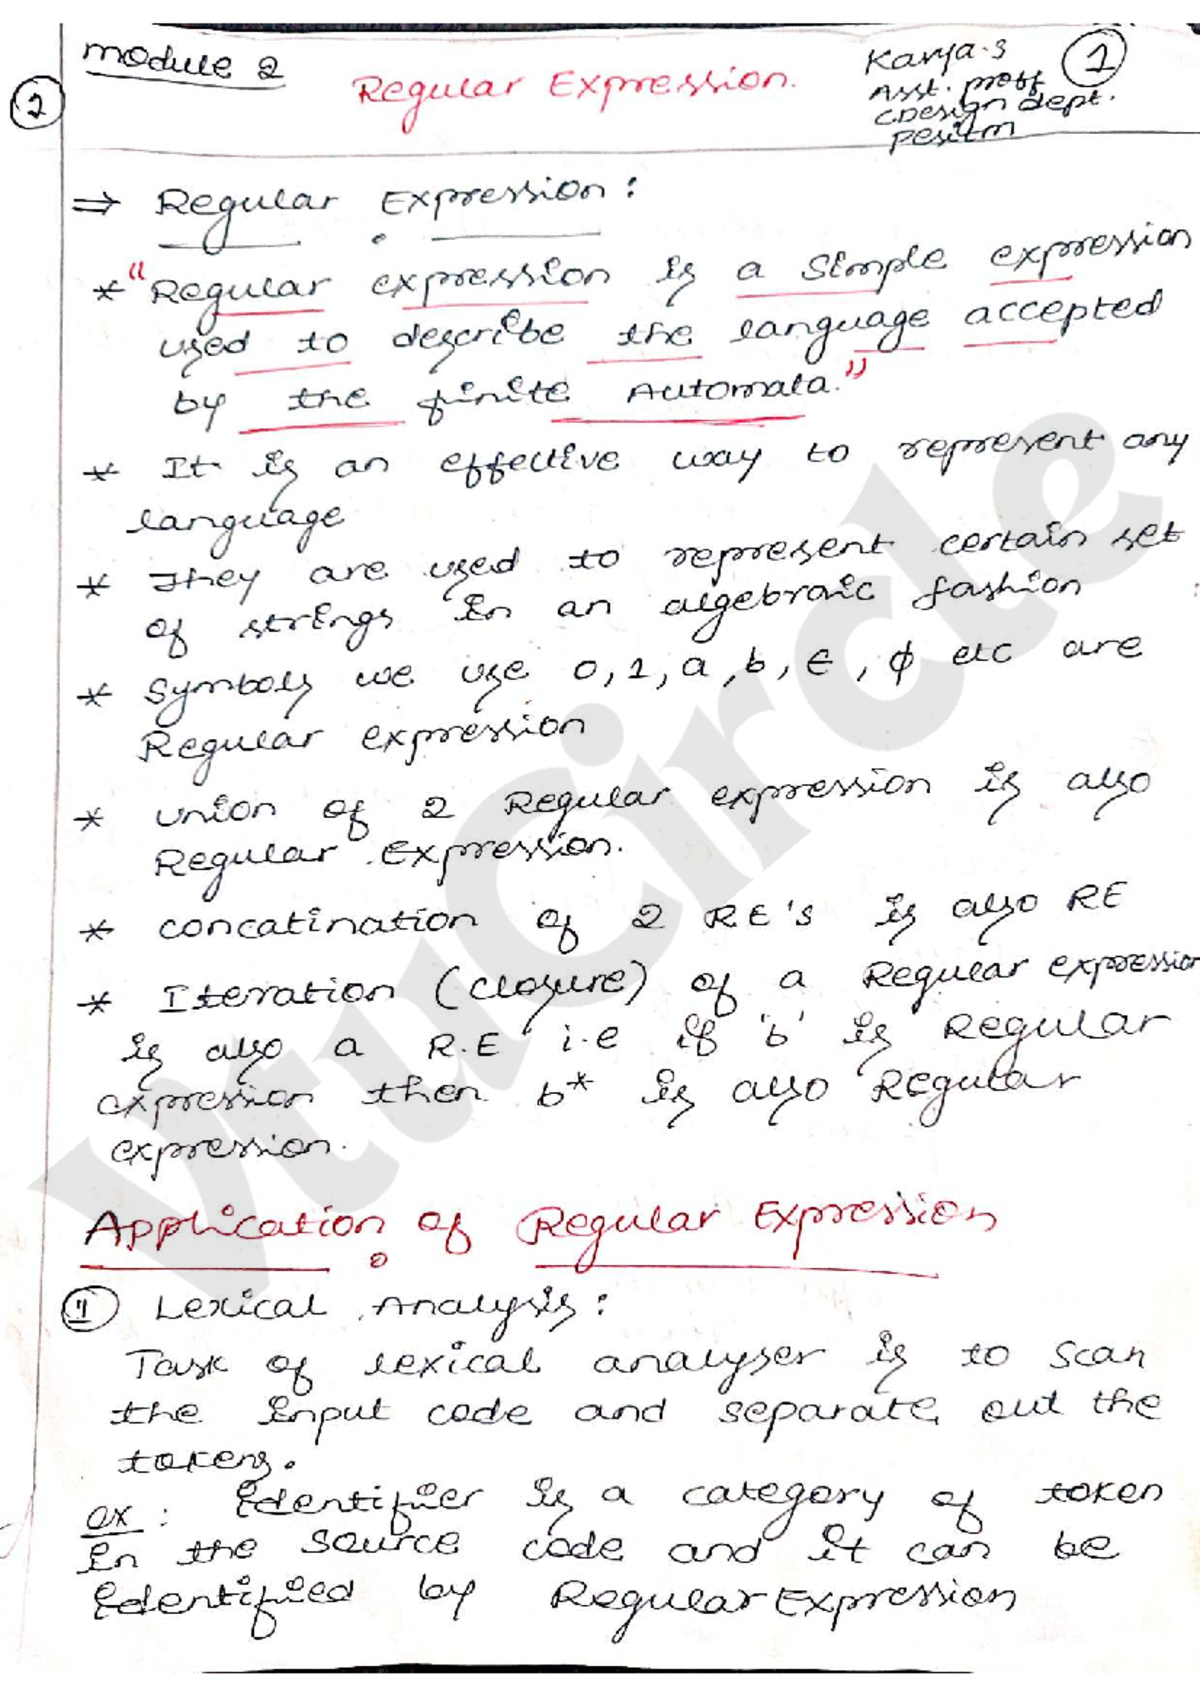 Module 2
Regular Expression.
Kavya.S
Asst. proff
C.Design dept.
Pesitm
1
2
⇒ Regular Expression:
* "Regular expression is a simple expression
used to describe the language accepted
by the finite Automata."
* It is an effective way to represent any
language
* They are used to represent certain set
of strings in an algebraic fashion
* Symbols we use 0, 1, a, b, ∈, ϕ etc are
Regular expression
* Union of 2 Regular expression is also
Regular Expression.
* Concatination of 2 RE's is also RE
* Iteration (closure) of a Regular expression
is also a R.E i.e if 'b' is Regular
expression then b* is also Regular
expression.
Application of Regular Expression
1 Lexical Analysis:
Task of lexical analyser is to scan
the input code and separate out the
tokens.
ex: Identifier is a category of token
in the source code and it can be
identified by Regular Expression
VtuCircle